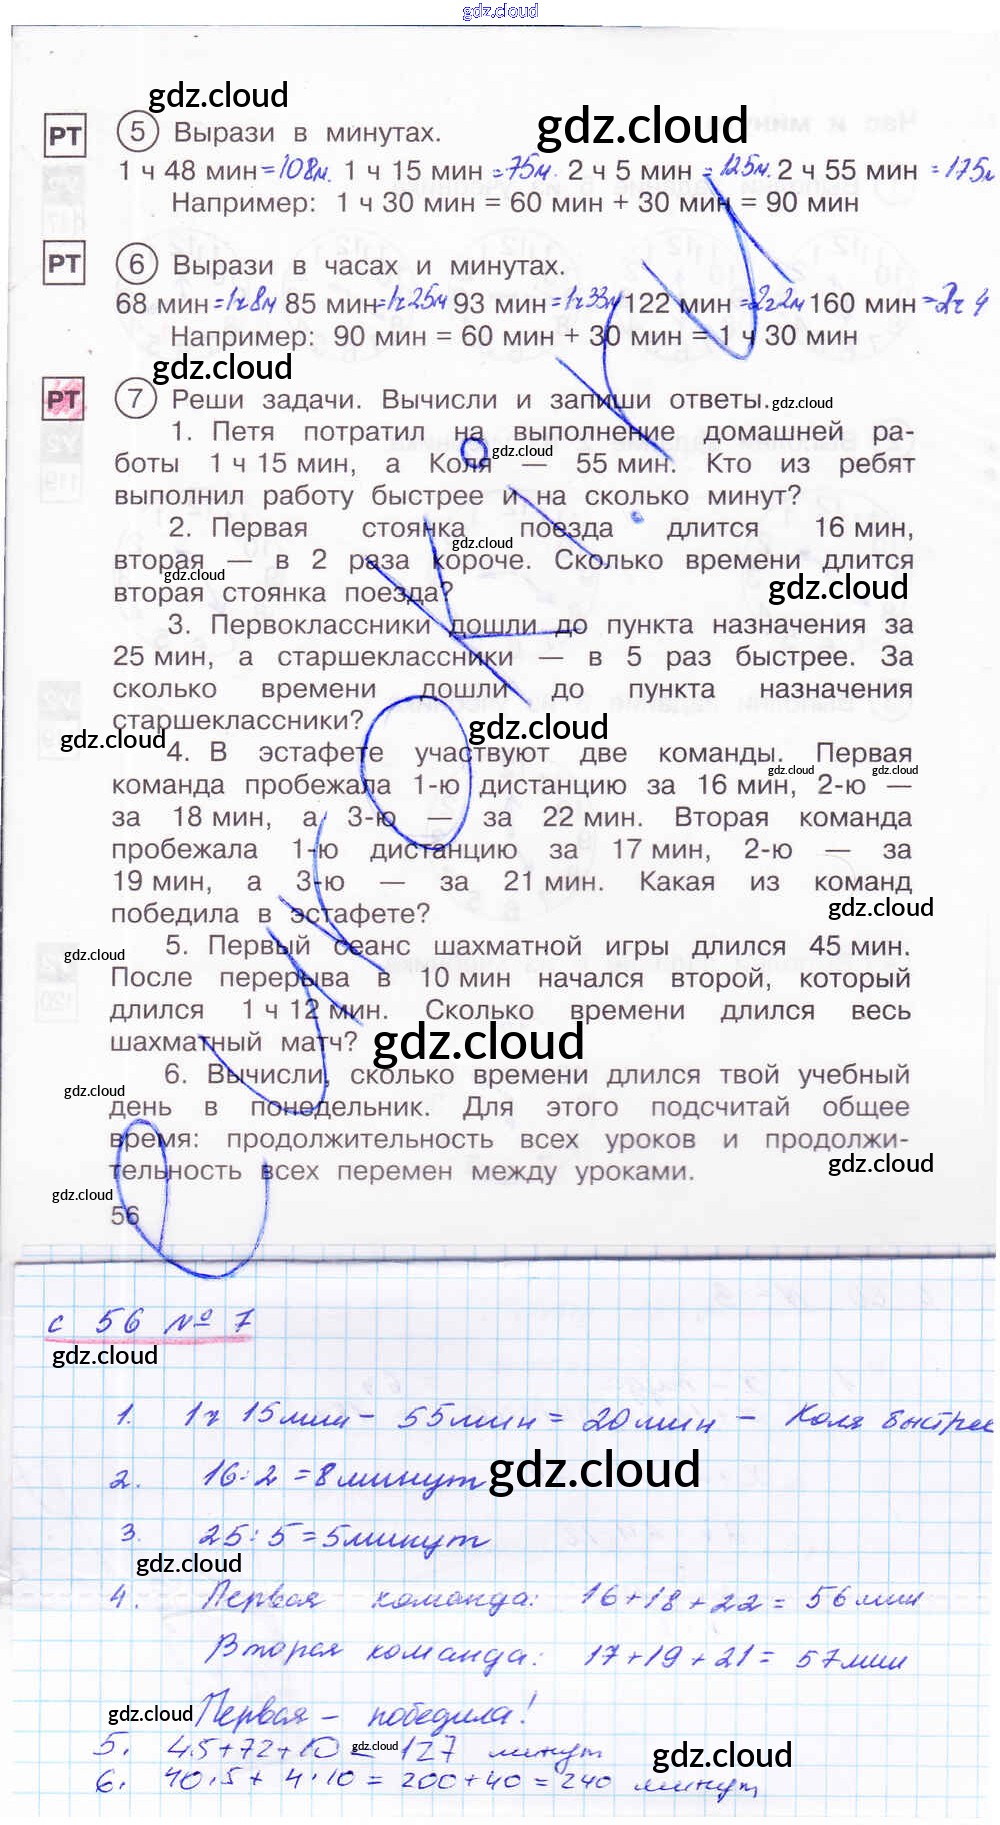 gdz.cloud
gdz.cloud
gdz.cloud
РТ 5 Вырази в минутах.
1 ч 48 мин =108м. 1 ч 15 мин =75м. 2 ч 5 мин =125м. 2 ч 55 мин =175м
Например: 1 ч 30 мин = 60 мин + 30 мин = 90 мин
РТ 6 Вырази в часах и минутах.
68 мин =1ч8м 85 мин =1ч25м 93 мин =1ч33м 122 мин =2ч2м 160 мин =2ч4
Например: 90 мин = 60 мин + 30 мин = 1 ч 30 мин
gdz.cloud
РТ 7 Реши задачи. Вычисли и запиши ответы. gdz.cloud
1. Петя потратил на выполнение домашней ра-
gdz.cloud
боты 1 ч 15 мин, а Коля — 55 мин. Кто из ребят
выполнил работу быстрее и на сколько минут?
2. Первая стоянка поезда длится 16 мин,
gdz.cloud
вторая — в 2 раза короче. Сколько времени длится
gdz.cloud
gdz.cloud
вторая стоянка поезда?
3. Первоклассники дошли до пункта назначения за
25 мин, а старшеклассники — в 5 раз быстрее. За
сколько времени дошли до пункта назначения
старшеклассники?
gdz.cloud
gdz.cloud
4. В эстафете участвуют две команды. Первая
gdz.cloud gdz.cloud
команда пробежала 1-ю дистанцию за 16 мин, 2-ю —
за 18 мин, а 3-ю — за 22 мин. Вторая команда
пробежала 1-ю дистанцию за 17 мин, 2-ю — за
19 мин, а 3-ю — за 21 мин. Какая из команд
gdz.cloud
победила в эстафете?
5. Первый сеанс шахматной игры длился 45 мин.
gdz.cloud
После перерыва в 10 мин начался второй, который
длился 1 ч 12 мин. Сколько времени длился весь
шахматный матч?
gdz.cloud
6. Вычисли, сколько времени длился твой учебный
gdz.cloud
день в понедельник. Для этого подсчитай общее
время: продолжительность всех уроков и продолжи-
gdz.cloud
тельность всех перемен между уроками.
gdz.cloud
56
с 56 № 7
gdz.cloud
1. 1ч 15мин - 55мин = 20мин - Коля быстрее
2. 16:2 = 8минут
gdz.cloud
3. 25:5 = 5минут
gdz.cloud
4. Первая команда: 16+18+22 = 56мин
Вторая команда: 17+19+21 = 57мин
Первая - победила!
gdz.cloud
5. 45+72+10 = 127 минут
gdz.cloud
gdz.cloud
6. 40·5 + 4·10 = 200+40 = 240 минут